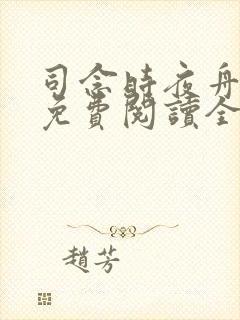 司念時夜舟
免費閱讀全
趙芳